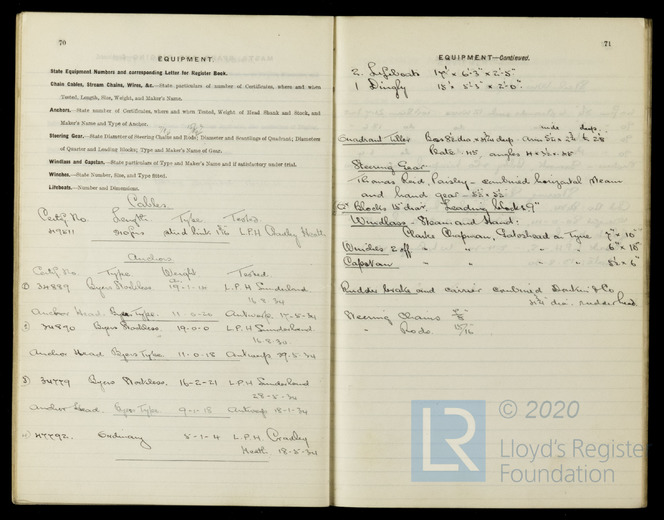 70
EQUIPMENT.
State Equipment Numbers and corresponding Letter for Register Book.
Chain Cables, Stream Chains, Wires, &c.—State particulars of number of Certificates, where and when
Tested, Length, Size, Weight, and Maker's Name.
Anchors.—State number of Certificates, where and when Tested, Weight of Head Shank and Stock, and
Maker's Name and Type of Anchor.
Steering Gear.—State Diameter of Steering Chains and Rods; Diameter and Scantlings of Quadrant; Diameters
of Quarter and Leading blocks; Type and Maker's Name of Gear.
Windlass and Capstan.—State particulars of Type and Maker's Name and if satisfactory under trial.
Winches.—State Number, Size, and Type fitted.
Lifeboats.—Number and Dimensions.
Cables
Certif No. Length. Type Tested.
47811 210 fms stud link L.P.H. Cradley Heath
Anchors
Certif No. Type Weight Tested
1) 34889 Byers Stockless. 19-1-14 L.P.H. Sunderland
16.8.34
Anchor Head. Byers Type. 11-0-20 Antwerp 17-5-34
2) 34890 Byers Stockless. 19-0-0 L.P.H Sunderland
16.8.30
Anchor Head Byers Type. 11-0-18 Antwerp 29.5-34
3) 34779 Byers Stockless. 16-2-21 L.P.H Sunderland
28-5-34
Anchor Head. Byers Type. 9-1-18 Antwerp 18-1-34
4) 47792. Ordinary 5-1-4 L.P.H. Cradley
Heath 18-5-34
71
EQUIPMENT—Continued.
2. Lifeboats 17' x 6'3" x 2'5"
1 Dingly 15' x 5'5" x 2'0"
wide deep.
Quadrant Tiller Boss dia x deep Arms
Plate .45 angles
Steering Gear
Thomas Reid, Paisley - combined horizontal steam
and hand gear -
Qr Blocks dia. Leading blocks 9"
Windlass - Steam and Hand:
Clarke Chapman, Gateshead on Tyne 7" x 10"
Winches 2 off " " " 6" x 10"
Capstan " " " 5½ x 6"
Rudder brake and carrier combined Donkin & Co
dia. rudder head.
Steering Chains
" Rods
LR
© 2020
Lloyd's Register
Foundation